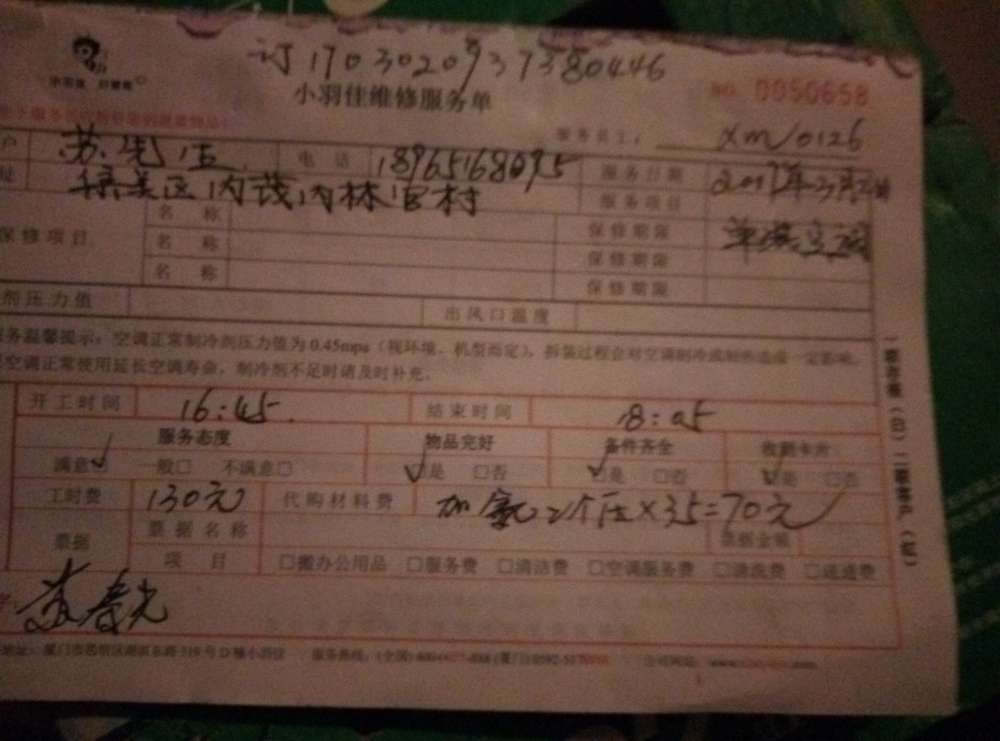 订1703020937380446
小羽佳维修服务单
NO. 0050658
服务员工: xm0126
苏先生 电话 18965168095 服务日期 2017年3月
集美区内茂内林官村 服务项目
名称 保修期限 单装空调
保修项目 名称 保修期限
名称 保修期限
剂压力值 出风口温度
务温馨提示:空调正常制冷剂压力值为0.45mpa(视环境、机型而定),拆装过程会对空调制冷或制热造成一定影响,
空调正常使用延长空调寿命,制冷剂不足时请及时补充。
开工时间 16:45 结束时间 18:05
服务态度 物品完好 备件齐全 收到卡片
满意✓ 一般□ 不满意□ ✓是 □否 ✓是 □否 ✓是 □否
工时费 130元 代购材料费 加氟2个压×35=70元
票据 票据名称 票据金额
项目 □搬办公用品 □服务费 □清洁费 □空调服务费 □清洗费 □疏通费
地址:厦门市思明区湖滨东路319号D幢小羽佳 服务热线:(全国)400- (厦门)0592- 公司网站:www.
一联存根(白)二联客户(红)